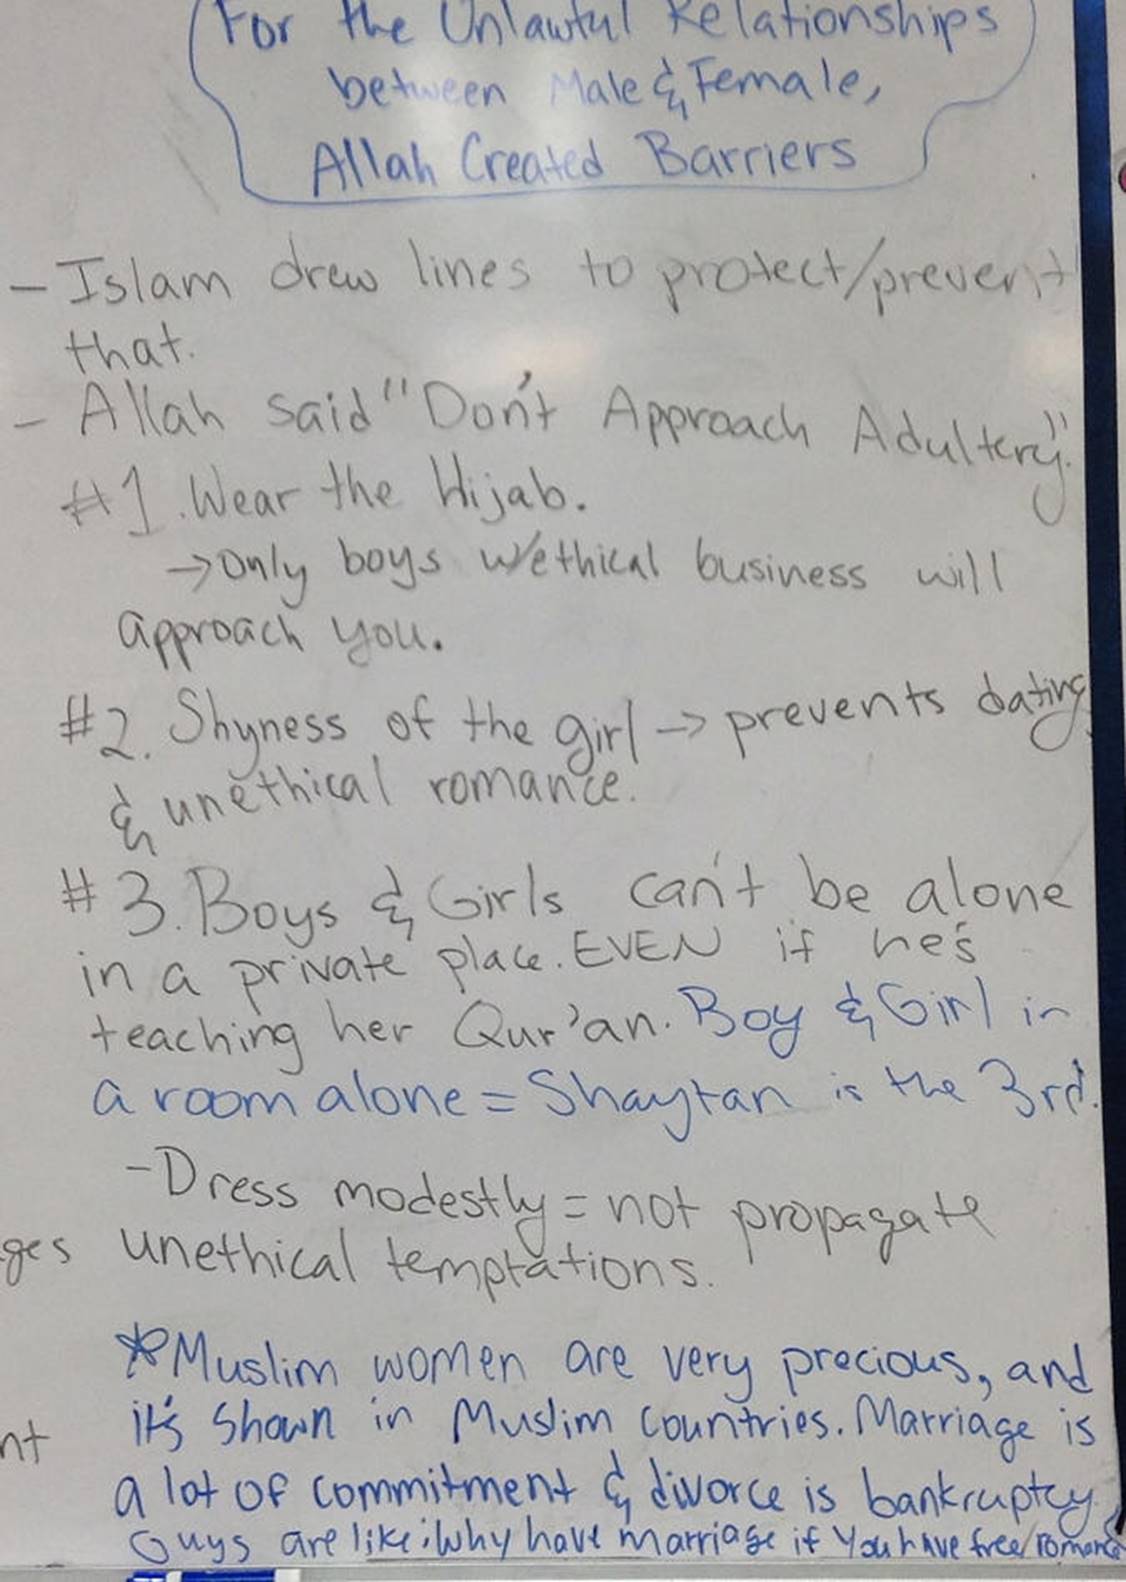 For the Unlawful Relationships
between Male & Female,
Allah Created Barriers
- Islam drew lines to protect/prevent
that.
- Allah said "Don't Approach Adultery".
#1. Wear the Hijab.
→ Only boys w/ethical business will
approach you.
#2. Shyness of the girl → prevents dating
& unethical romance.
#3. Boys & Girls can't be alone
in a private place. EVEN if he's
teaching her Qur'an. Boy & Girl in
a room alone = Shaytan is the 3rd.
- Dress modestly = not propagate
ges unethical temptations.
*Muslim women are very precious, and
it's shown in Muslim countries. Marriage is
nt
a lot of commitment & divorce is bankruptcy
Guys are like: Why have marriage if you have free romance